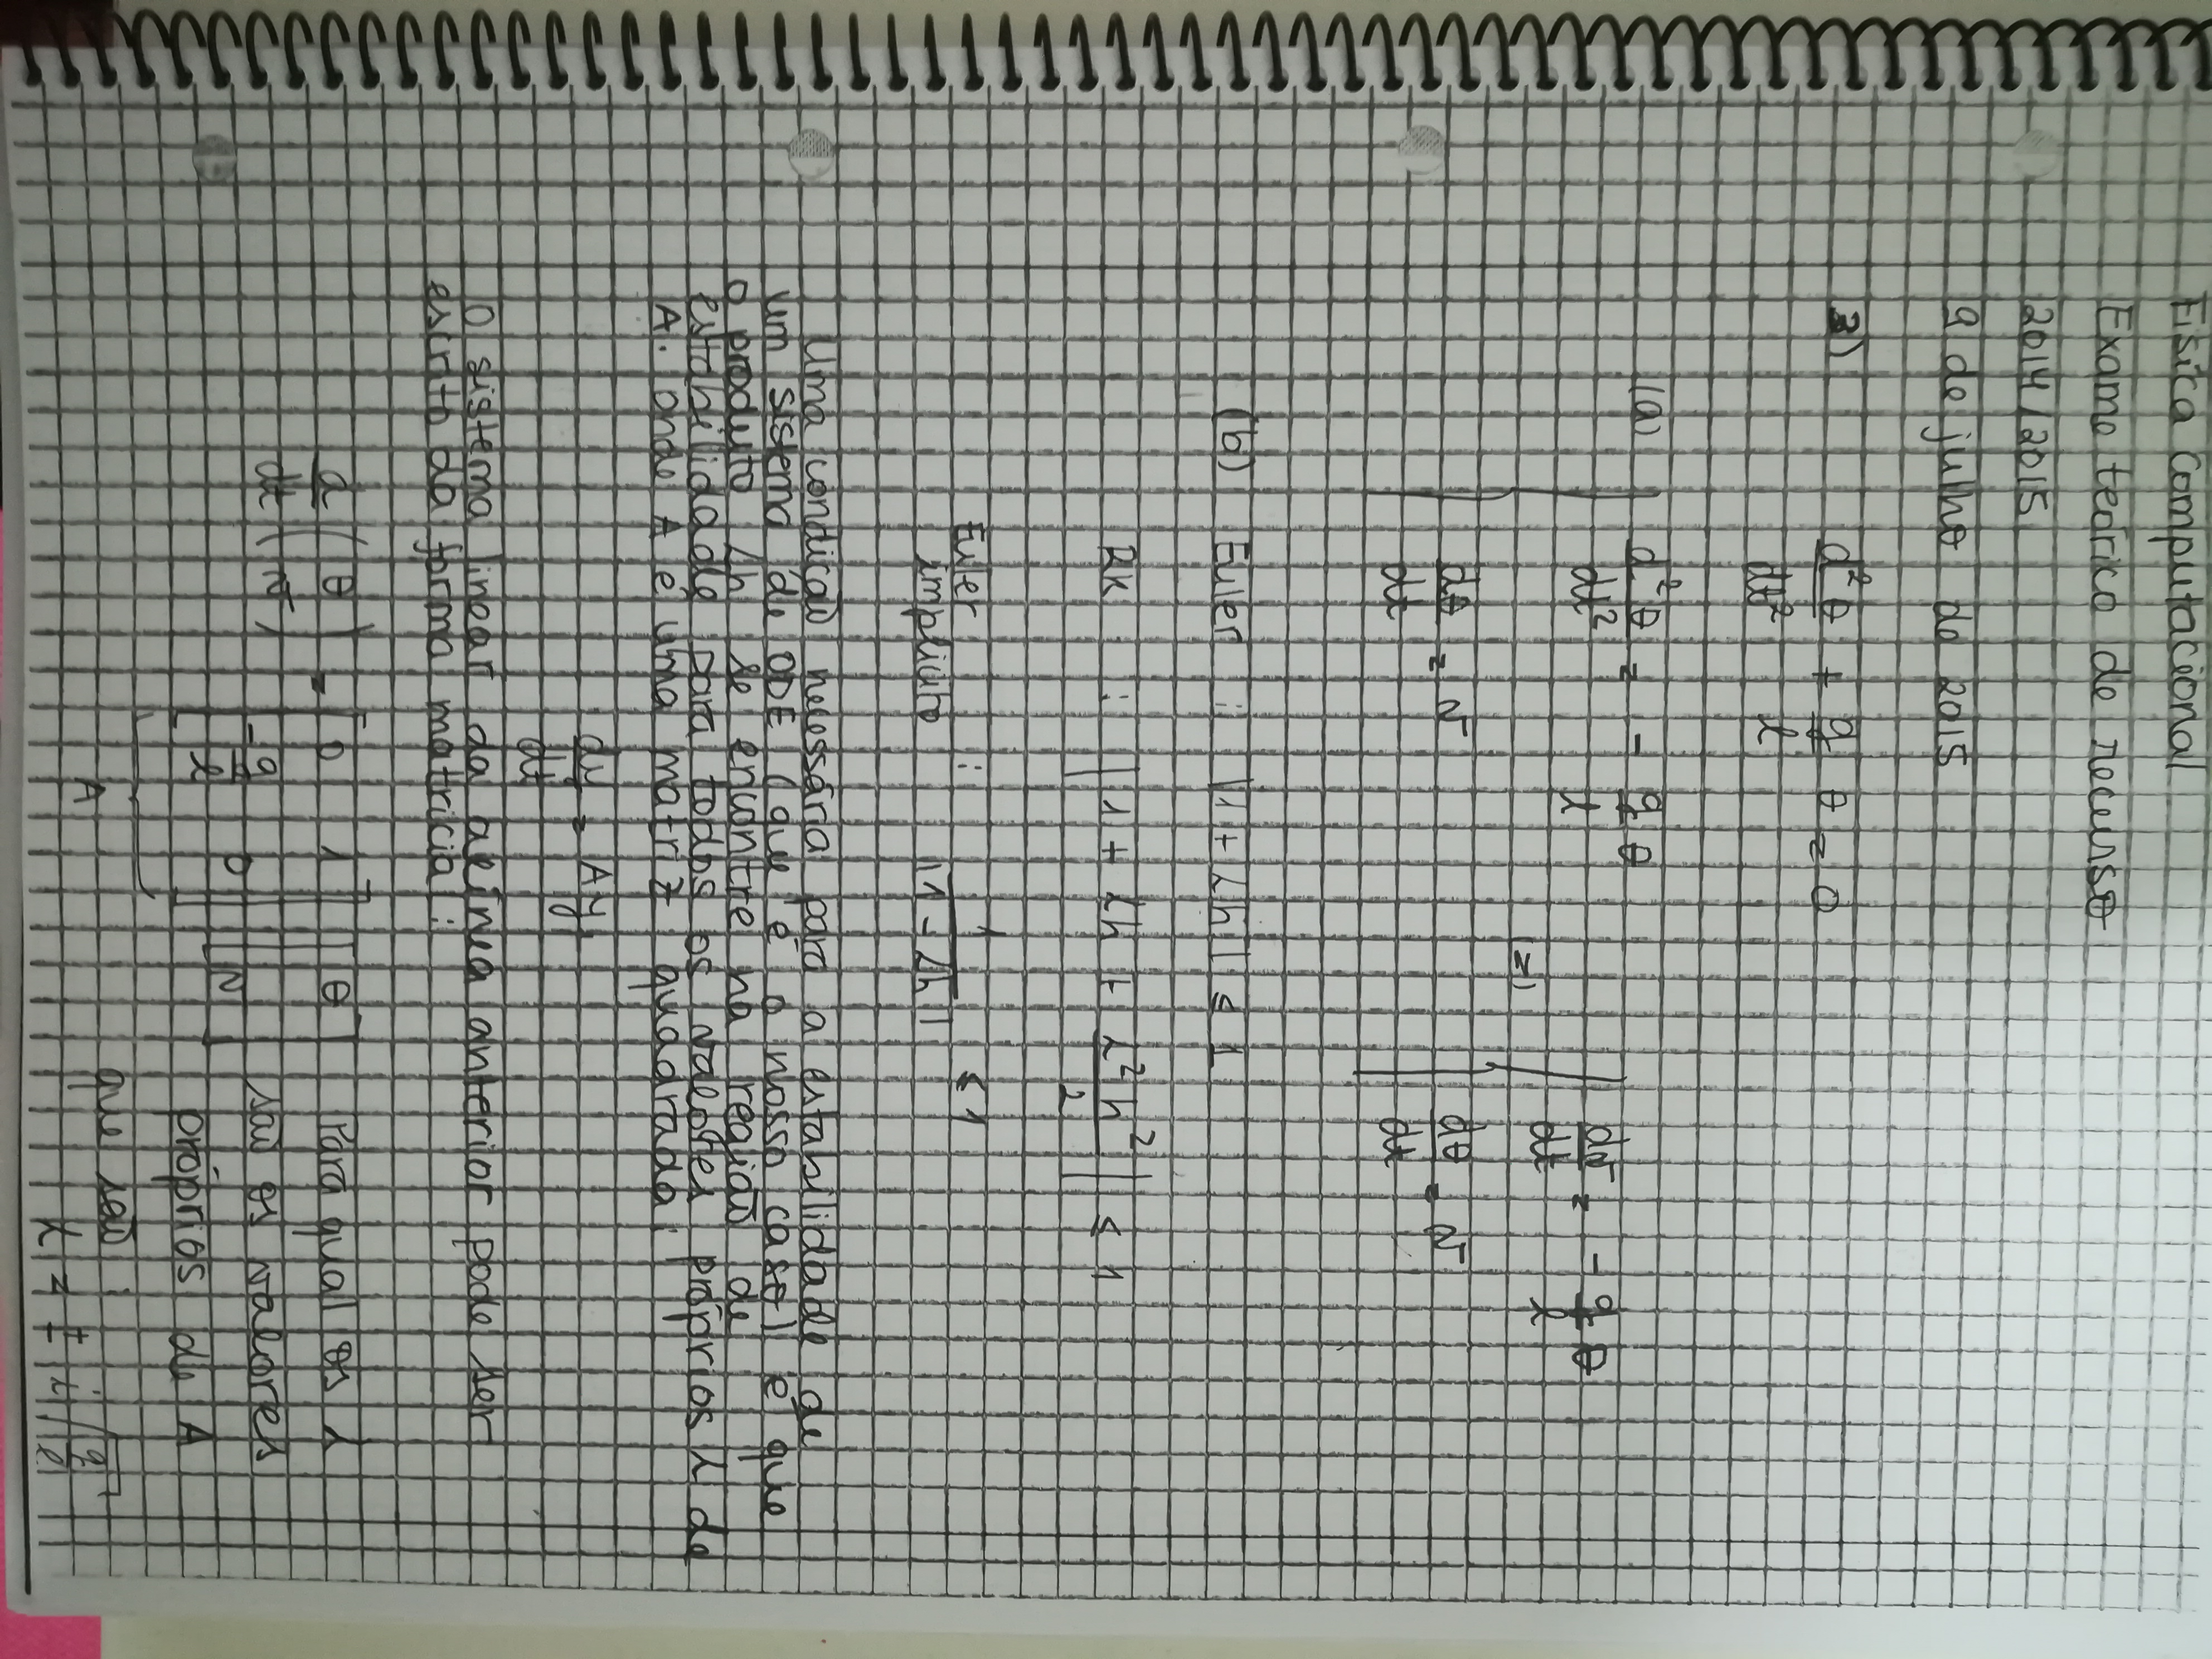 Física Computacional
Exame teórico de recurso
2014/2015
9 de julho de 2015
3) d²θ/dt² + g/l θ = 0
(a) d²θ/dt² = - g/l θ
dθ/dt = v
(=)
dv/dt = - g/l θ
dθ/dt = v
(b) Euler : |1 + λh| ≤ 1
RK : |1 + λh + λ²h²/2| ≤ 1
Euler implícito : 1/|1 - λh| ≤ 1
Uma condição necessária para a estabilidade de
um sistema de ODE (que é o nosso caso) é que
o produto λh se encontre na região de
estabilidade para todos os valores próprios λ de
A. onde A é uma matriz quadrada:
dy/dt = Ay
O sistema linear da alínea anterior pode ser
escrito da forma matricial:
d/dt (θ v) = [0 1 -g/l 0] [θ v]
A
Para qual os λ
são os valores
próprios de A
que são:
λ = ± i √(g/l)